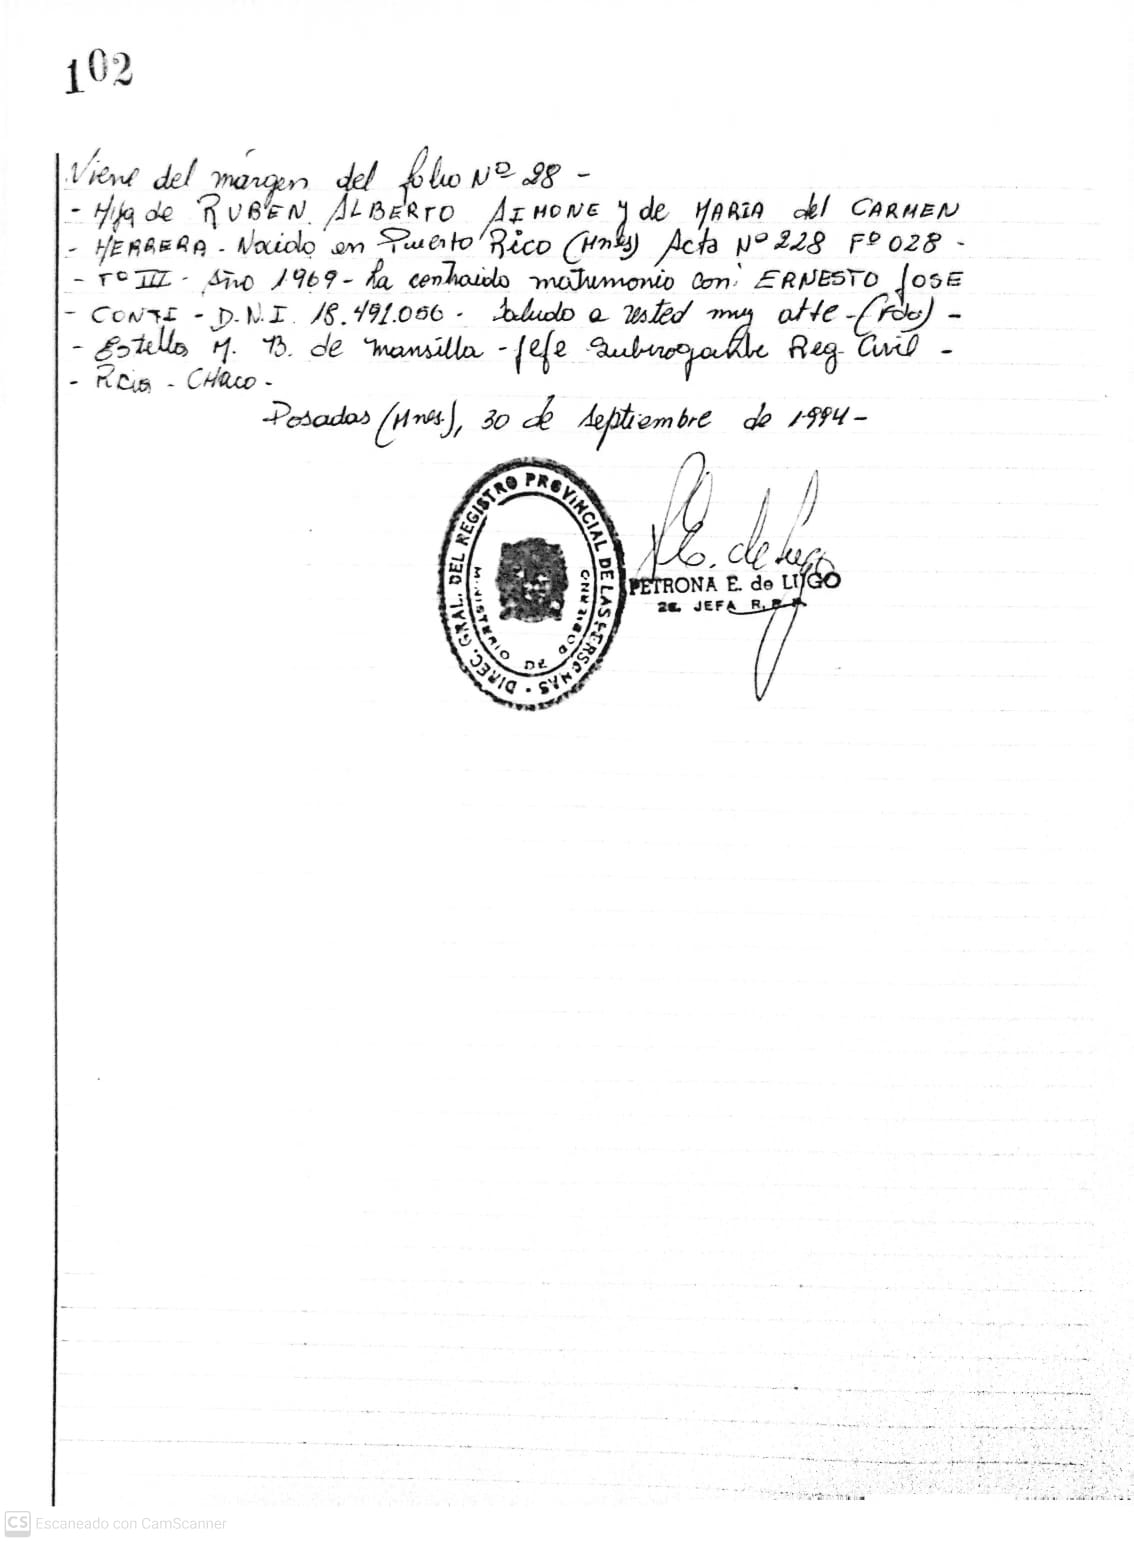 102
Viene del márgen del folio Nº 28 -
- Hija de RUBEN ALBERTO AIMONE y de MARIA del CARMEN
- HERRERA - Nacida en Puerto Rico (Mnes) Acta Nº 228 Fº 028 -
- Tº III - Año 1969 - ha contraido matrimonio con: ERNESTO JOSE
- CONTI - D.N.I. 18.491.056 - Saludo a usted muy atte - (Fdo) -
- Estella M. B. de Mansilla - Jefe Subrogante Reg. Civil -
- Rcia - CHaco -
Posadas (Mnes), 30 de septiembre de 1994 -
DIREC. GRAL. DEL REGISTRO PROVINCIAL DE LAS PERSONAS
MINISTERIO DE GOBIERNO
P.E. de Lugo
PETRONA E. de LUGO
2a. JEFA R.P.P.
CS Escaneado con CamScanner